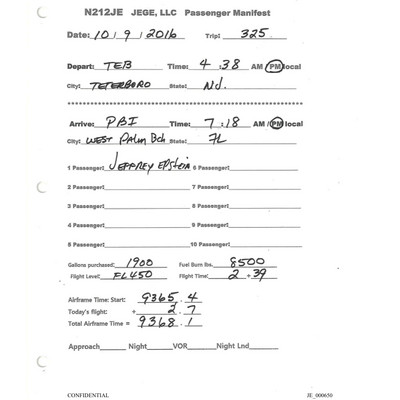 N212JE JEGE, LLC Passenger Manifest
Date: 10 / 9 / 2016 Trip: 325
Depart: TEB Time: 4 : 38 AM / PM local
City: TETERBORO State: NJ.
Arrive: PBI Time: 7 : 18 AM / PM local
City: WEST Palm Bch State: FL
1 Passenger: JEFFREY EPSTEIN 6 Passenger:
2 Passenger: 7 Passenger:
3 Passenger: 8 Passenger:
4 Passenger: 9 Passenger:
5 Passenger: 10 Passenger:
Gallons purchased: 1900 Fuel Burn lbs. 8500
Flight Level: FL450 Flight Time: 2 + 39
Airframe Time: Start: 9365 . 4
Today's flight: + 2 . 7
Total Airframe Time = 9368 . 1
Approach Night VOR Night Lnd
CONFIDENTIAL JE_000650